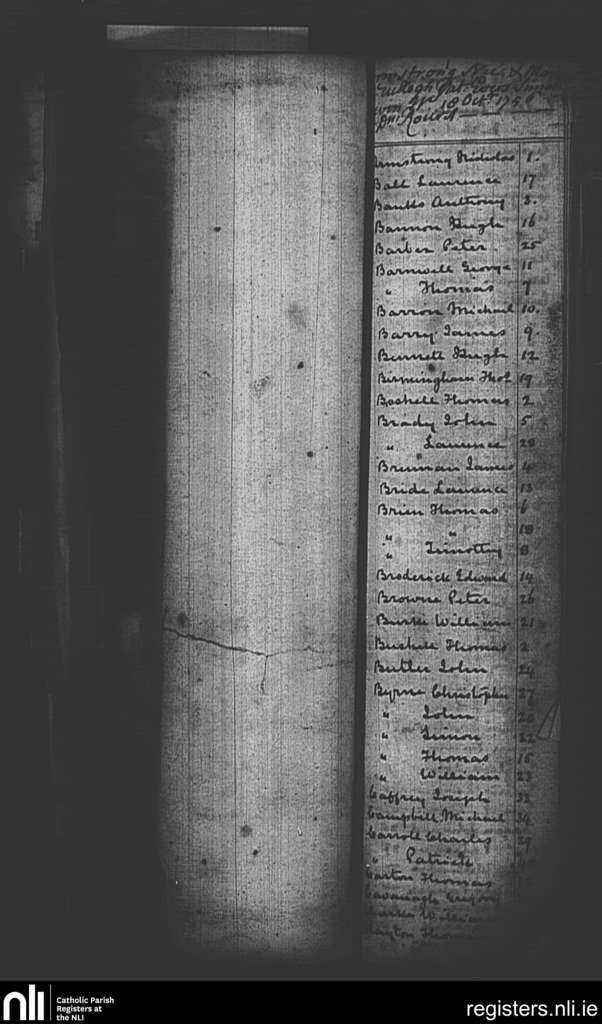 Armstrong Nicholas 1.
Ball Laurence 17
Banks Anthony 3.
Bannon Hugh 16
Barber Peter 25
Barnwell George 11
" Thomas 7
Barron Michael 10.
Barry James 9.
Bennett Hugh 12
Birmingham Thos 19
Boshell Thomas 2
Brady John 5
" Laurence 28
Brennan James 4
Bride Laurence 13
Brien Thomas 6
" " 18
" Timothy 8
Broderick Edward 14
Browne Peter 26
Burke William 21
Bushell Thomas 2
Butler John 24
Byrne Christopher 27
" John 20
" Simon 22
" Thomas 15
" William 23
Caffrey Joseph 32
Campbell Michael 34
Carroll Charles 29
" Patrick
Carton Thomas
Cavanagh Gregory
Clarke William
Clayton Thomas
nli Catholic Parish
Registers at
the NLI
registers.nli.ie